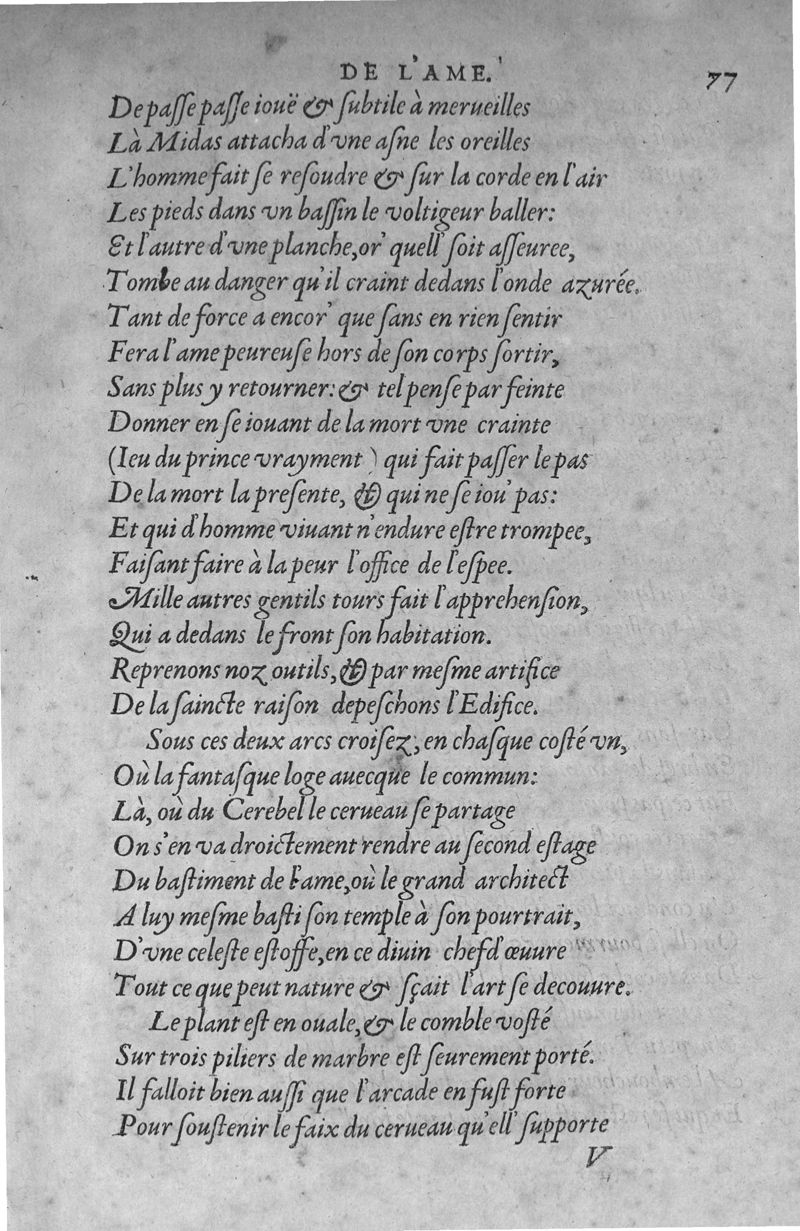 DE L'AME.
77
De paſſe paſſe iouë & ſubtile à merueilles
Là Midas attacha d'vne aſne les oreilles
L'homme fait ſe reſoudre & ſur la corde en l'air
Les pieds dans vn baſſin le voltigeur baller:
Et l'autre d'vne planche, or' quell' ſoit aſſeuree,
Tombe au danger qu'il craint dedans l'onde azurée.
Tant de force a encor' que ſans en rien ſentir
Fera l'ame peureuſe hors de ſon corps ſortir,
Sans plus y retourner: & tel penſe par feinte
Donner en ſe iouant de la mort vne crainte
(Ieu du prince vrayment ) qui fait paſſer le pas
De la mort la preſente, & qui ne ſe iou' pas:
Et qui d'homme viuant n'endure eſtre trompee,
Faiſant faire à la peur l'office de l'eſpee.
Mille autres gentils tours fait l'apprehenſion,
Qui a dedans le front ſon habitation.
Reprenons noz outils, & par meſme artifice
De la ſaincte raiſon depeſchons l'Edifice.
Sous ces deux arcs croiſez, en chaſque coſté vn,
Où la fantaſque loge auecque le commun:
Là, où du Cerebel le cerueau ſe partage
On s'en va droictement rendre au ſecond eſtage
Du baſtiment de l'ame, où le grand architect
A luy meſme baſti ſon temple à ſon pourtrait,
D'vne celeſte eſtoffe, en ce diuin chef d'œuure
Tout ce que peut nature & ſçait l'art ſe decouure.
Le plant eſt en ouale, & le comble voſté
Sur trois piliers de marbre eſt ſeurement porté.
Il falloit bien auſſi que l'arcade en fuſt forte
Pour ſouſtenir le faix du cerueau qu'ell' ſupporte
V